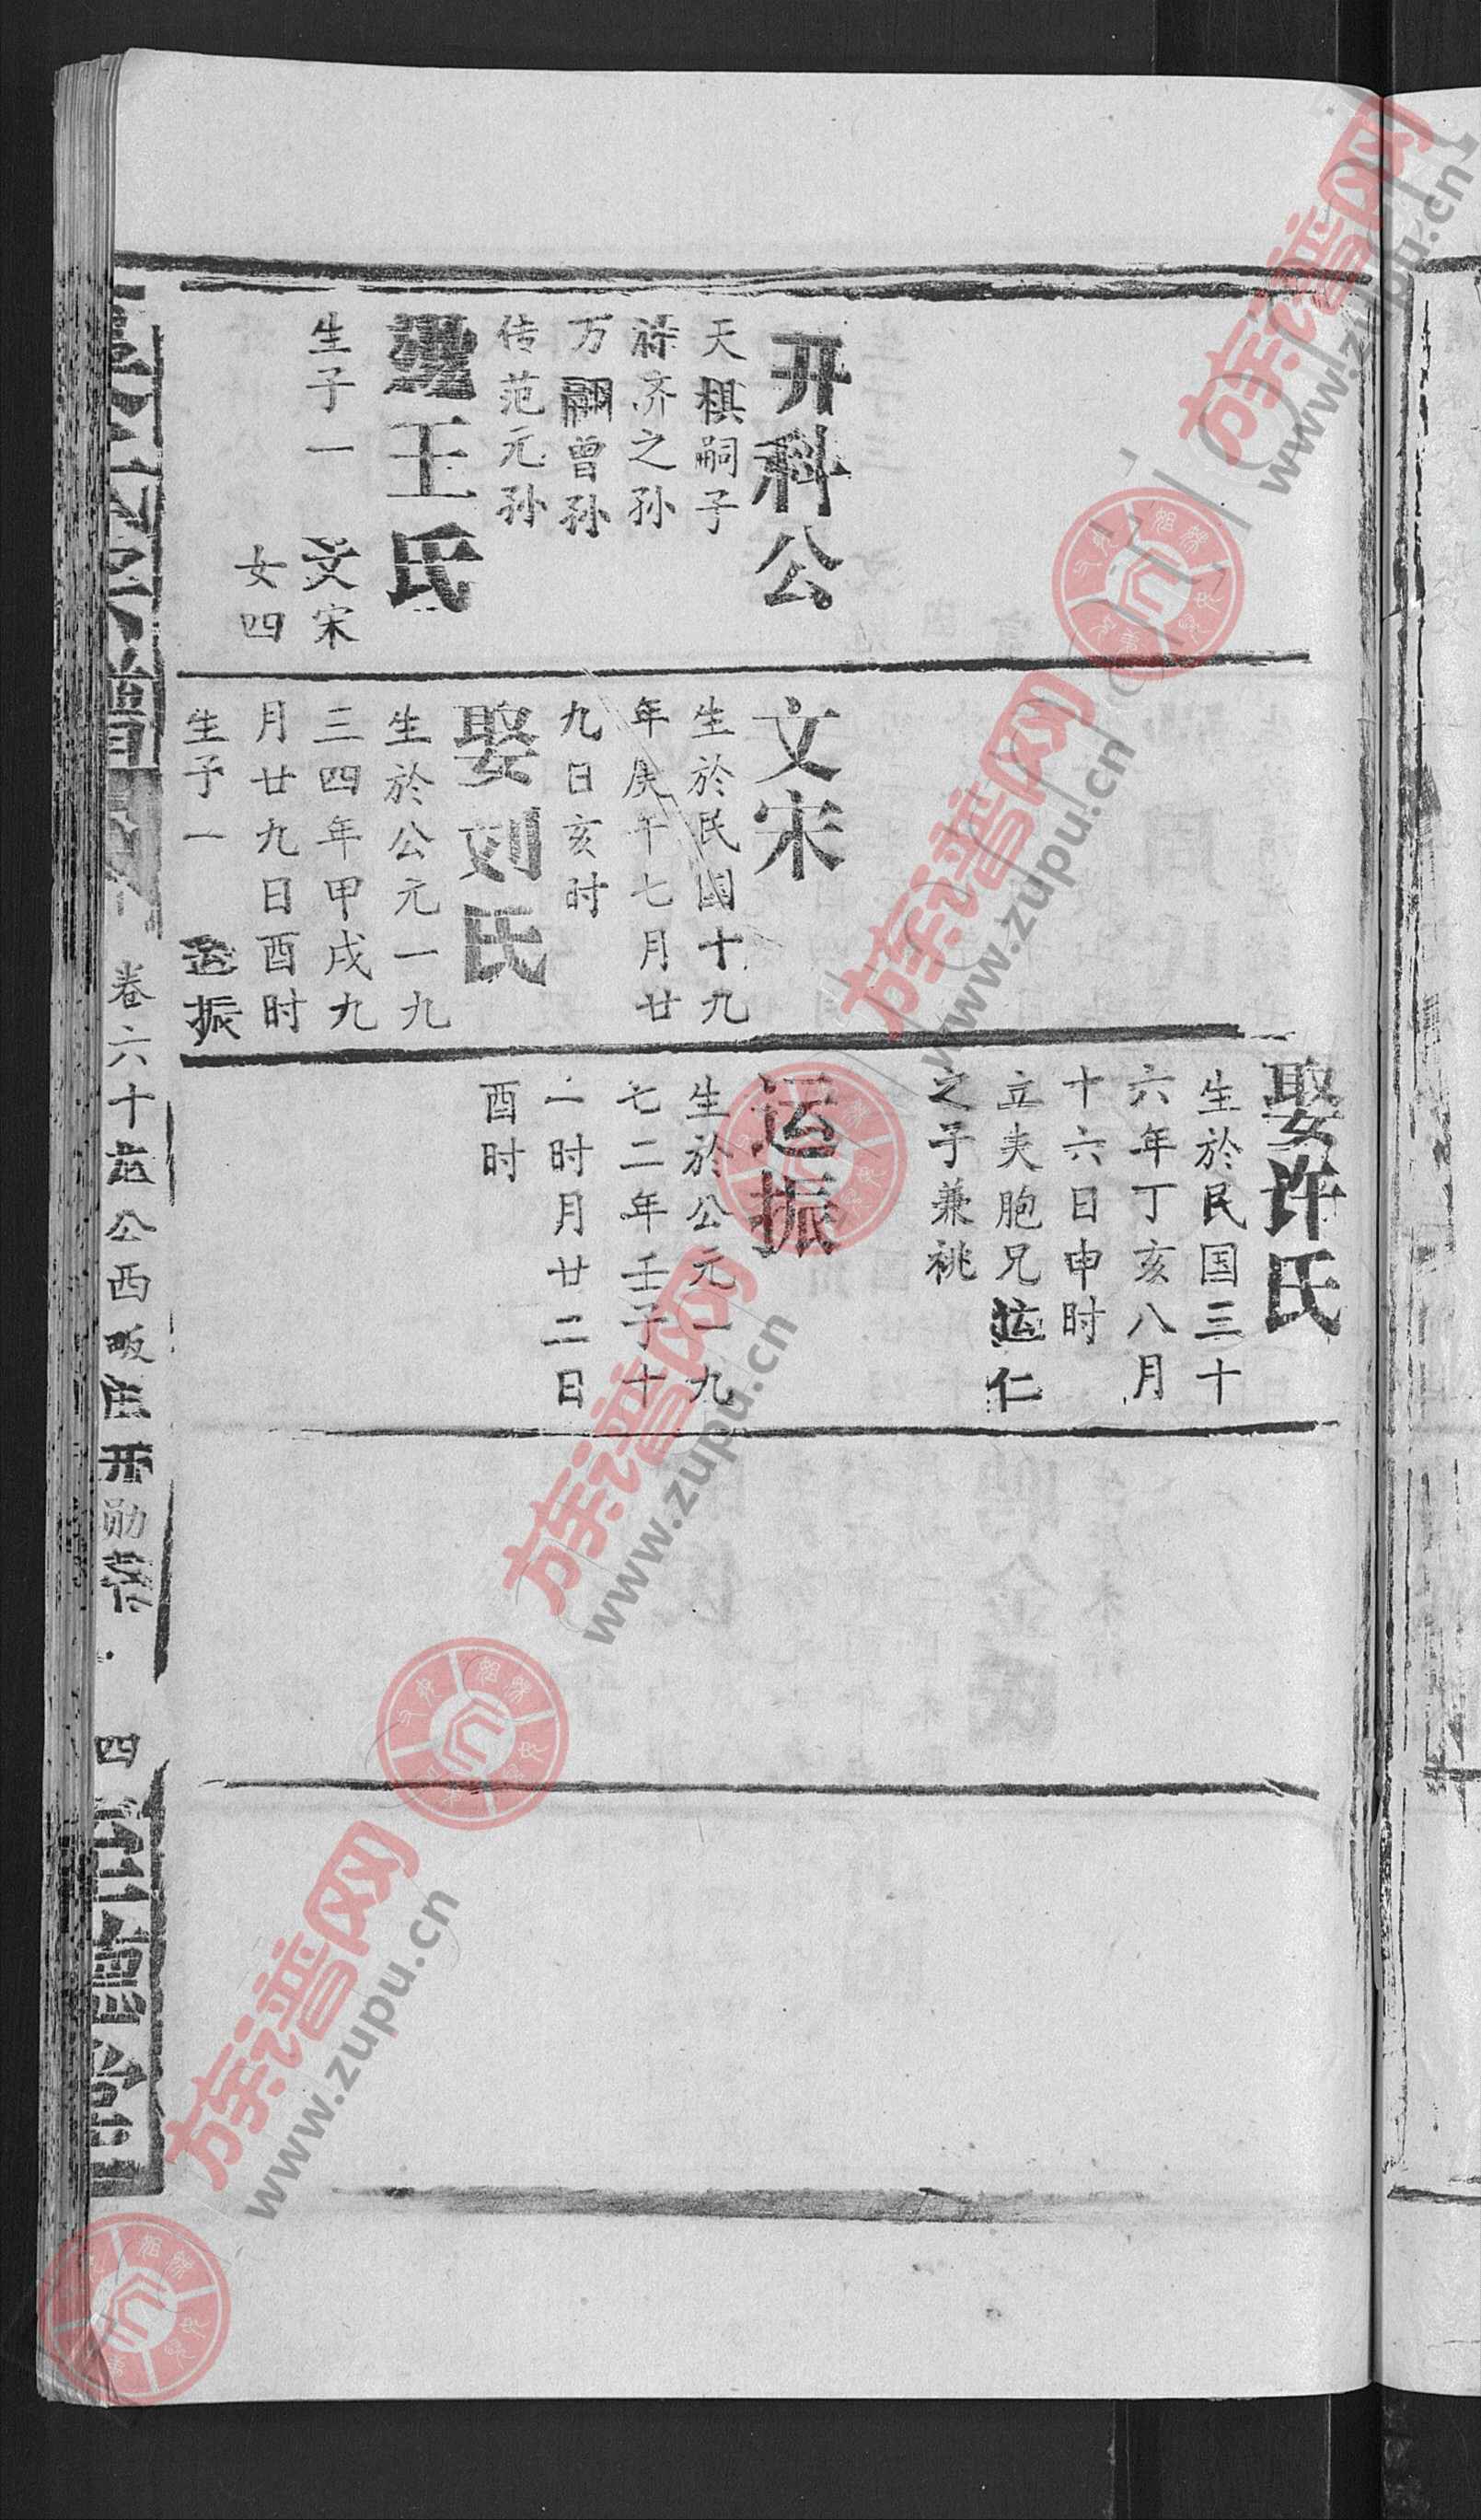 开科公
天棋嗣子
济之孙
万翮曾孙
传范元孙
王氏
生子一
文宋
女四
文宋
生於民国十九
年庚午七月廿
九日亥时
娶刘氏
生於公元一九
三四年甲戌九
月廿九日酉时
生子一
运振
娶许氏
生於民国三十
六年丁亥八月
十六日申时
立夫胞兄运仁
之子兼祧
运振
生於公元一九
七二年壬子十
一时月廿二日
酉时
卷六十
公西畈庄开勋
四
族谱网
www.zupu.cn
族谱网
www.zupu.cn
族谱网
www.zupu.cn
族谱网
www.zupu.cn